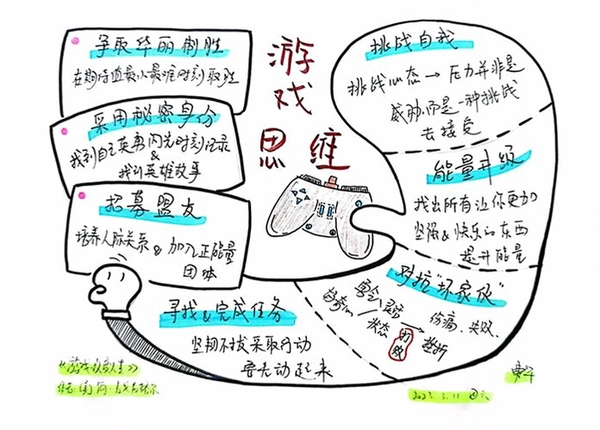 游戏
思维
挑战自我
挑战心态 → 压力并非是
威胁而是一种挑战
去接受
能量升级
找出所有让你更加
坚强&快乐的东西
提升能量
对抗"坏家伙"
状态
打败
伤痛、失败、
挫折
寻找&完成任务
坚韧不拔采取行动
要先动起来
招募盟友
培养人脉关系 & 加入正能量
团体
采用秘密身份
找到自己英勇闪光时刻记录
&
我的英雄故事
争取华丽制胜
在期待值最小最难时刻取胜